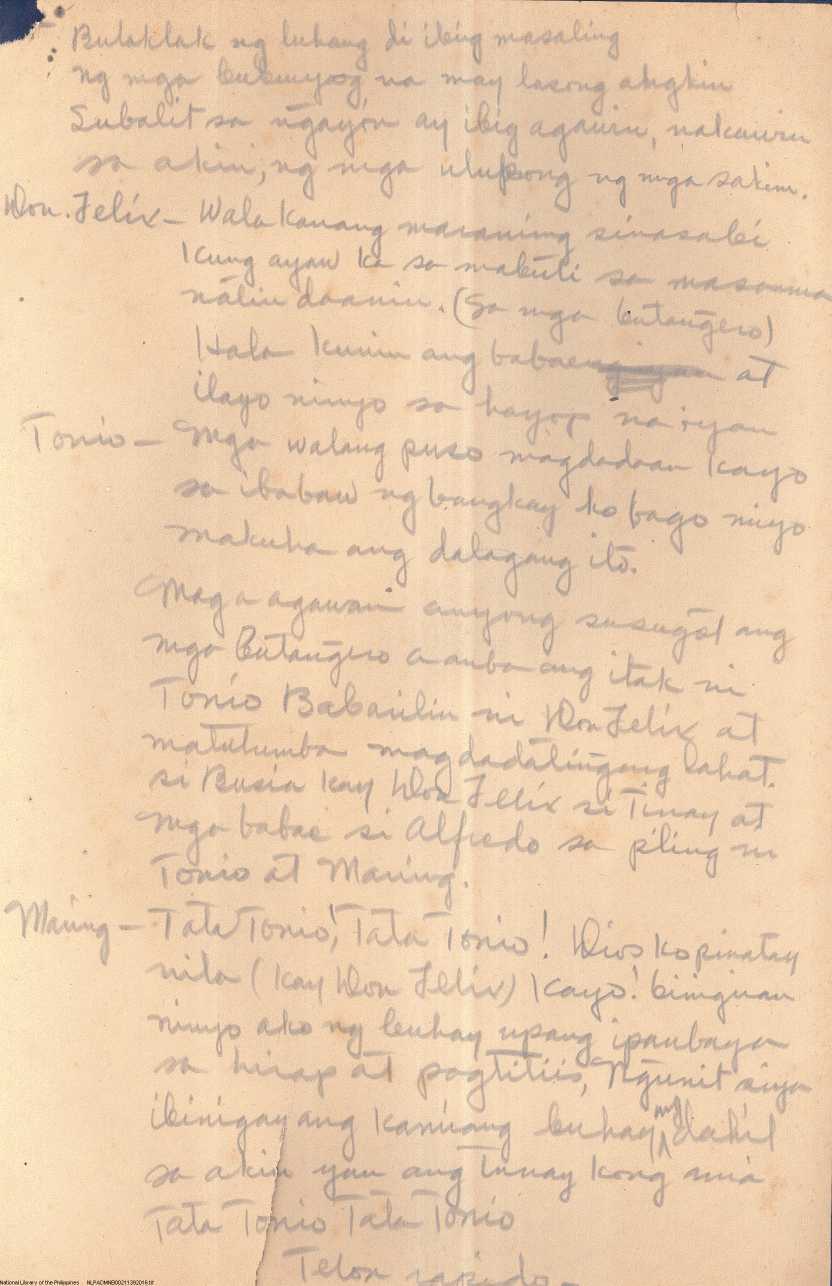 Bulaklak ng luhang di ibig masaling
ng mga bubuyog na may lasong angkin
Subalit sa ngayon ay ibig agawin, nakawin
sa akin, ng mga ulupong ng mga sakim.
Don. Felix - Wala kanang maraming sinasabi
Kung ayaw ka sa mabuti sa masama
natin daanin. (Sa mga butangero)
Hala kunin ang babaeng yan at
ilayo ninyo sa hayop na iyan
Tonio - Mga walang puso magdadaan kayo
sa ibabaw ng bangkay ko bago niyo
makuha ang dalagang ito.
Mag a agawan anyong susugod ang
mga butangero a amba ang itak ni
Tonio Babarilin ni Don Felix at
matutumba magdadatingang lahat.
si Busia kay Don Felix si Tinay at
mga babae si Alfredo sa piling ni
Tonio at Maring.
Maring - Tata Tonio, Tata Tonio! Dios ko pinatay
nila (kay Don Felix) Kayo! binigyan
ninyo ako ng buhay upang ipaubaya
sa hirap at pagtitiis, Ngunit siya
ibinigay ang kaniyang buhay ng dahil
sa akin yan ang tunay kong ama
Tata Tonio Tata Tonio
Telon rapido -
National Library of the Philippines NLPADMNB00211392016.tif